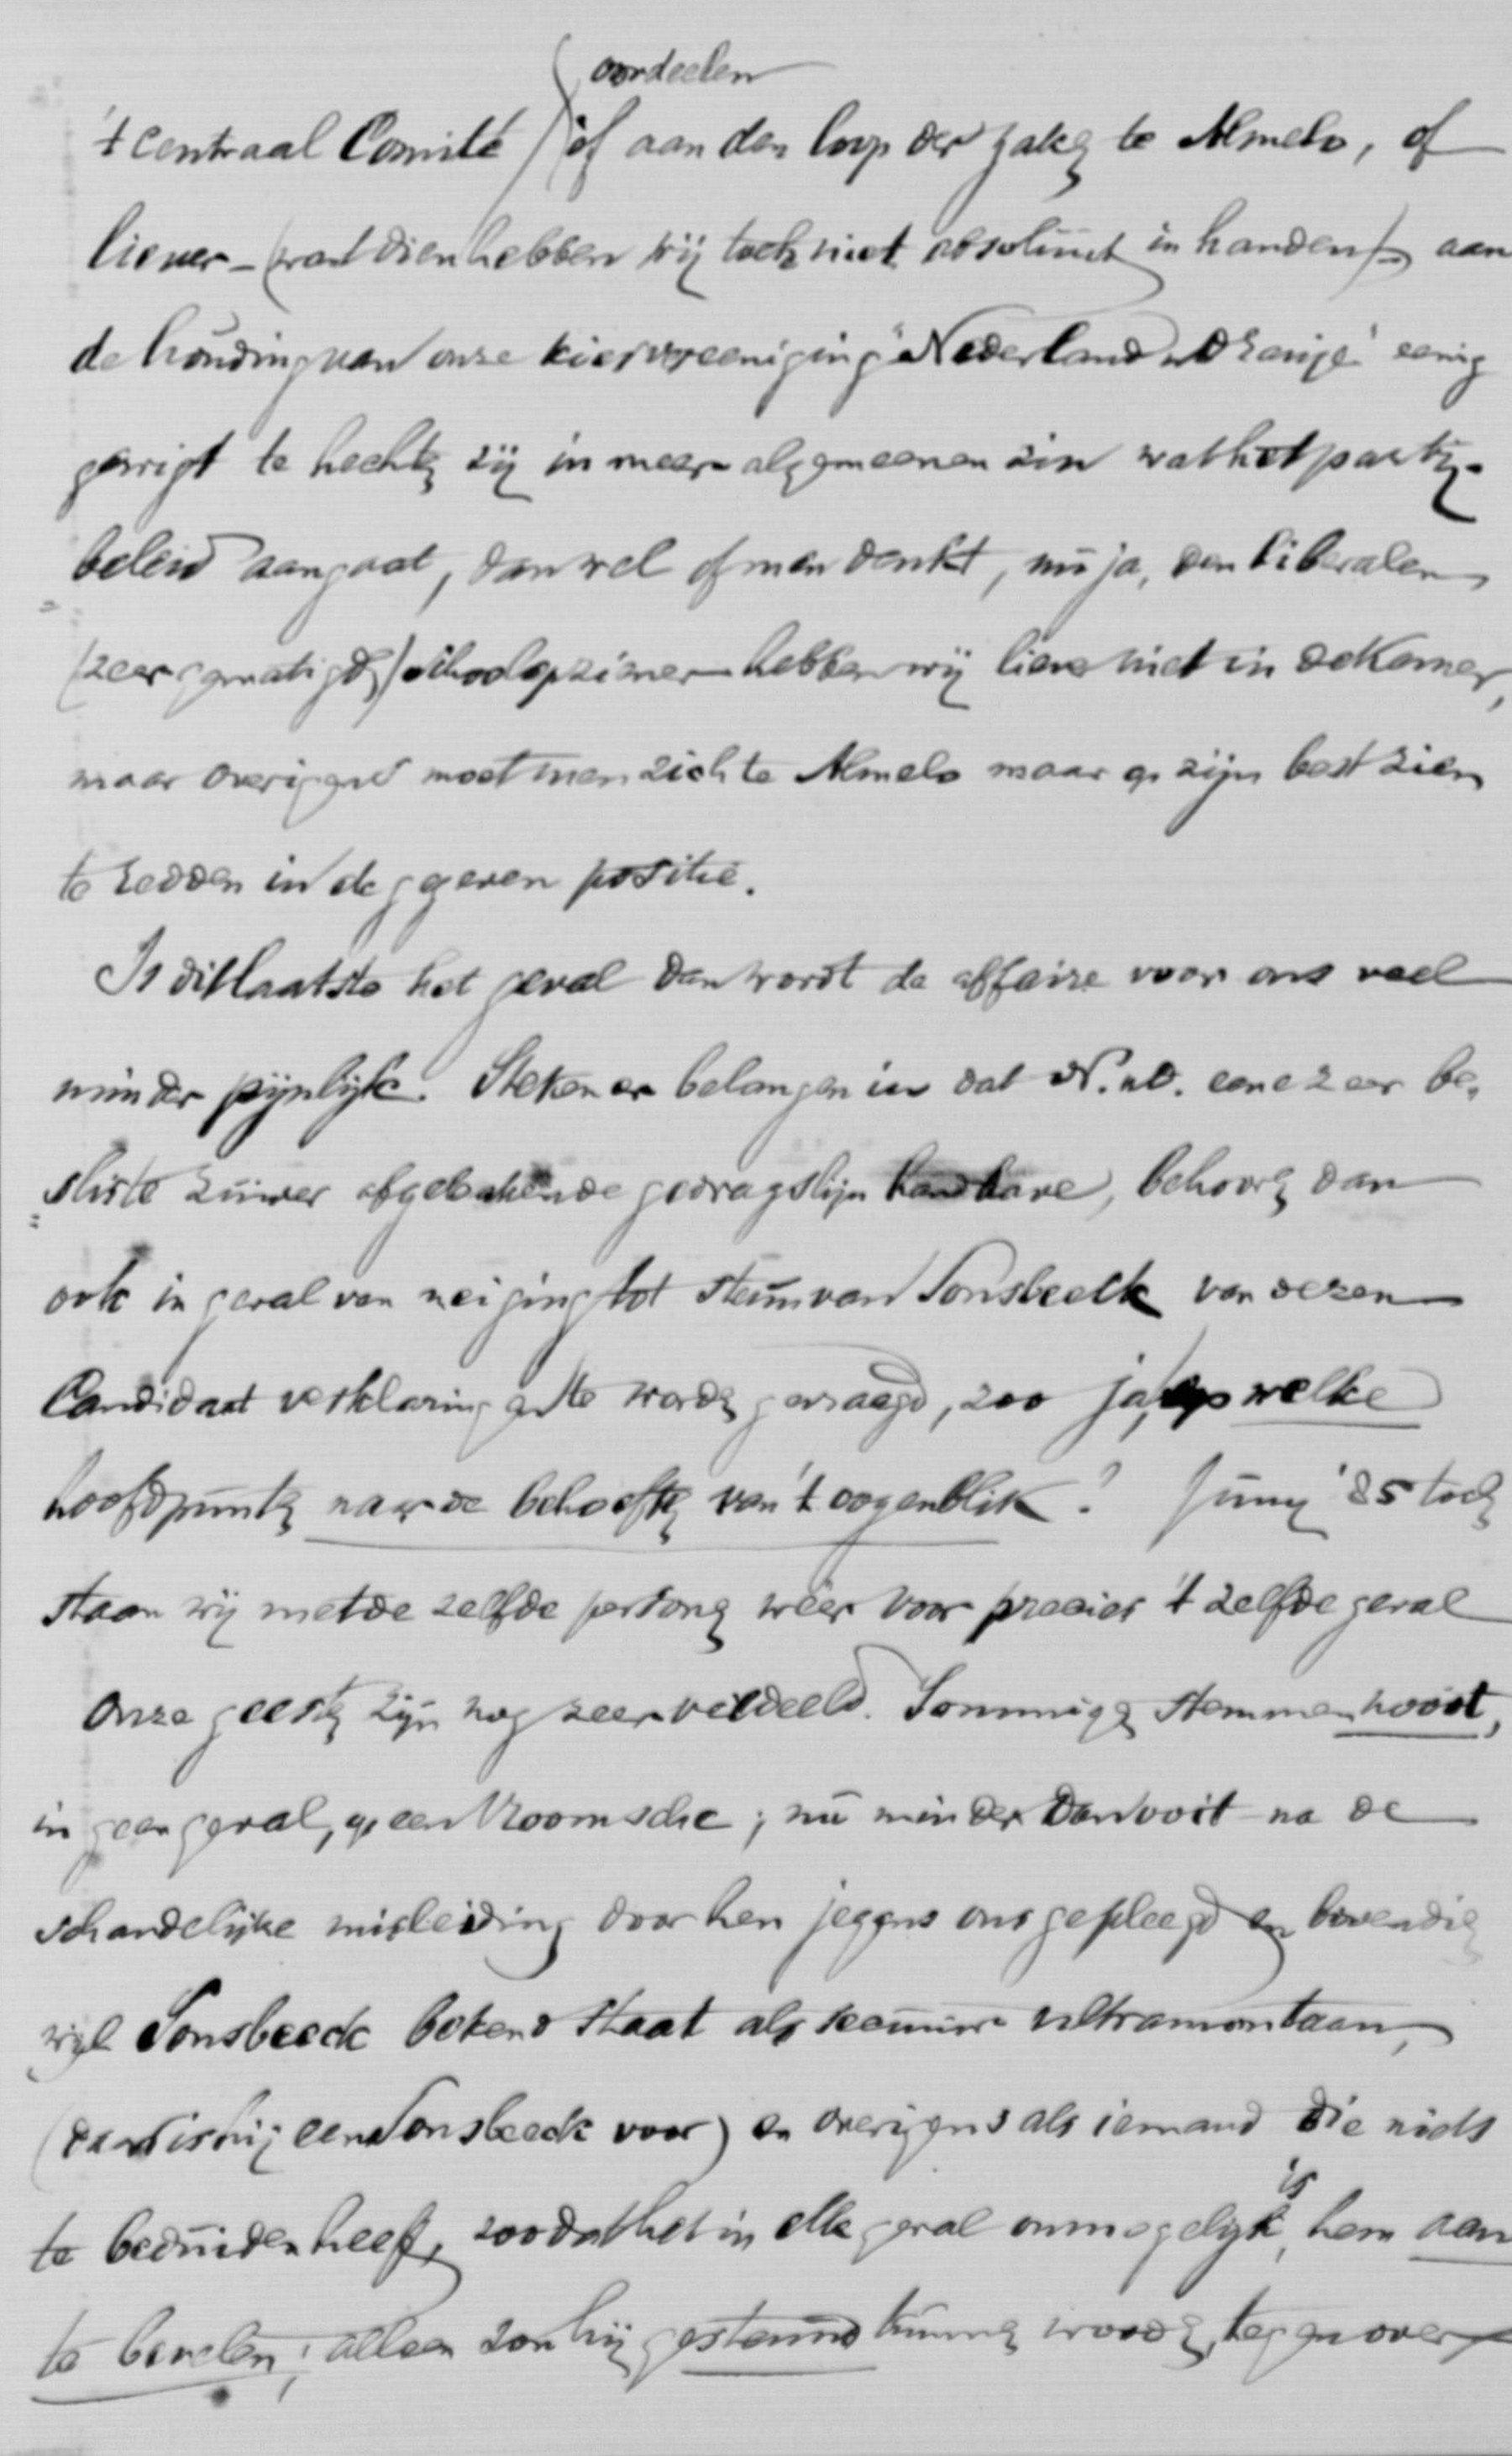 oordeelen
't Centraal Comité of aan den loop der zaken te Almelo, of
liever – (want dien hebben wij toch niet absoluut in handen) – aan
de houding van onze kiesvereeniging "Nederland en Oranje" eenig
gewigt te hechten zij in meer algemeenen zin wat het partij-
beleid aangaat, dan wel of men denkt, nu ja, den liberalen
(zeer gematigden) schoolopziener hebben wij liever niet in de Kamer,
maar overigens moet men zich te Almelo maar op zijn best zien
te redden in de gegeven positie.
Is dit laatste het geval dan wordt de affaire voor ons veel
minder pijnlijk. Steken er belangen in dat N. en O. eene zeer be-
sliste zuiver afgebakende gedragslijn handhave, behooren dan
ook in geval van neiging tot steun van Sonsbeeck van dezen
Candidaat verklaringen te worden gevraagd, zoo ja, op welke
hoofdpunten naar de behoeften van 't oogenblik? Juny '85 toch
staan wij met de zelfde personen wéer voor precies 't zelfde geval
Onze geesten zijn nog zeer verdeeld. Sommigen stemmen nooit,
in geen geval, op een Roomsche; nu minder dan ooit na de
schandelijke misleiding door hen jegens ons gepleegd en bovendien
wijl Sonsbeeck bekend staat als ultramontaan,
(daar is hij een Sonsbeeck voor) en overigens als iemand die niets
te beduiden heeft, zoodat het in elk geval onmogelijk is, hem aan
te bevelen; alleen zou hij gesteund kunnen worden, tegenover